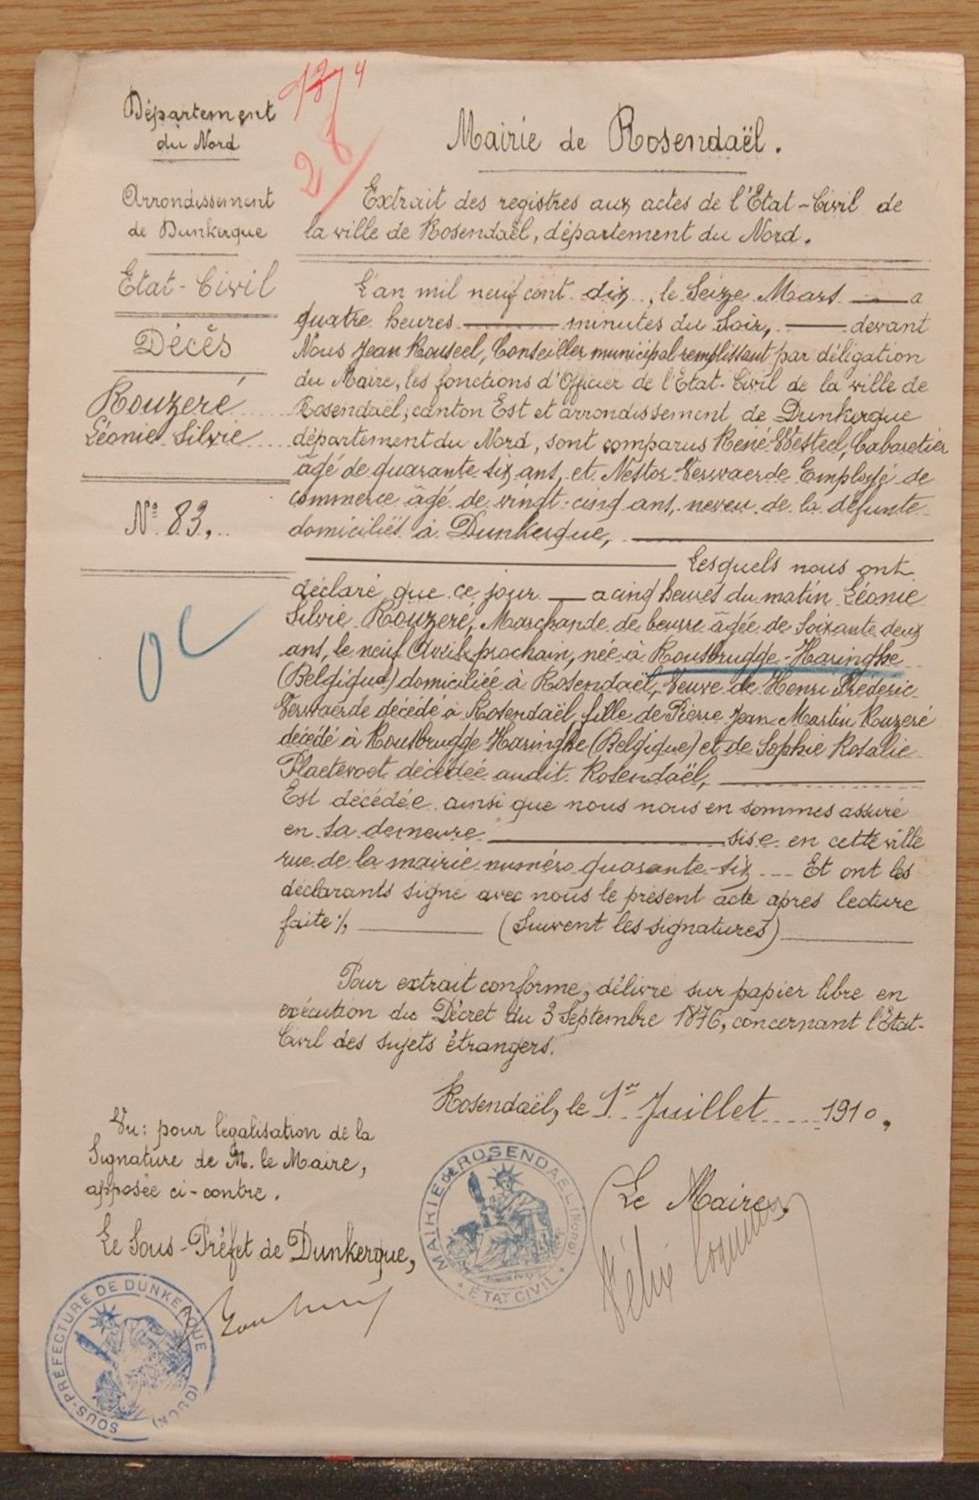 Département
du Nord
Arrondissement
de Dunkerque
Etat-Civil
Décès
Rouzeré
Léonie Silvie
N° 83.
Mairie de Rosendaël.
Extrait des registres aux actes de l'Etat-Civil de
la ville de Rosendaël, département du Nord.
L'an mil neuf cent dix, le Seize Mars a
quatre heures minutes du Soir, devant
Nous Jean Rouseel, Conseiller municipal remplissant par délégation
du Maire, les fonctions d'Officier de l'Etat-Civil de la ville de
Rosendaël, canton Est et arrondissement de Dunkerque
département du Nord, sont comparus René Westeel, Cabaretier
âgé de quarante-six ans, et Nestor Verwaerde Employé de
commerce âgé de vingt-cinq ans, neveu de la défunte
domiciliés à Dunkerque,
Lesquels nous ont
déclaré que ce jour a cinq heures du matin Léonie
Silvie Rouzeré, Marchande de beurre âgée de Soixante deux
ans, le neuf Avril prochain, née à Rousbrugge-Haringhe
(Belgique) domiciliée à Rosendaël, Veuve de Henri Frédéric
Verwaerde décédé à Rosendaël, fille de Pierre Jean Martin Rouzeré
décédé à Rousbrugge Haringhe (Belgique) et de Sophie Rosalie
Plaetevoet décédée audit Rosendaël,
Est décédée ainsi que nous nous en sommes assuré
en sa demeure sise en cette ville
rue de la mairie numéro quarante-six Et ont les
déclarants signé avec nous le présent acte après lecture
faite %. (Suivent les signatures)
Pour extrait conforme, délivré sur papier libre en
exécution du Décret du 3 Septembre 1876, concernant l'Etat-
Civil des sujets étrangers.
Rosendaël, le 1er Juillet 1910.
Vu: pour légalisation de la
Signature de M. le Maire,
apposée ci-contre.
Le Sous-Préfet de Dunkerque,
Le Maire,
MAIRIE DE ROSENDAËL (Nord)
ETAT CIVIL
SOUS-PRÉFECTURE DE DUNKERQUE (NORD)